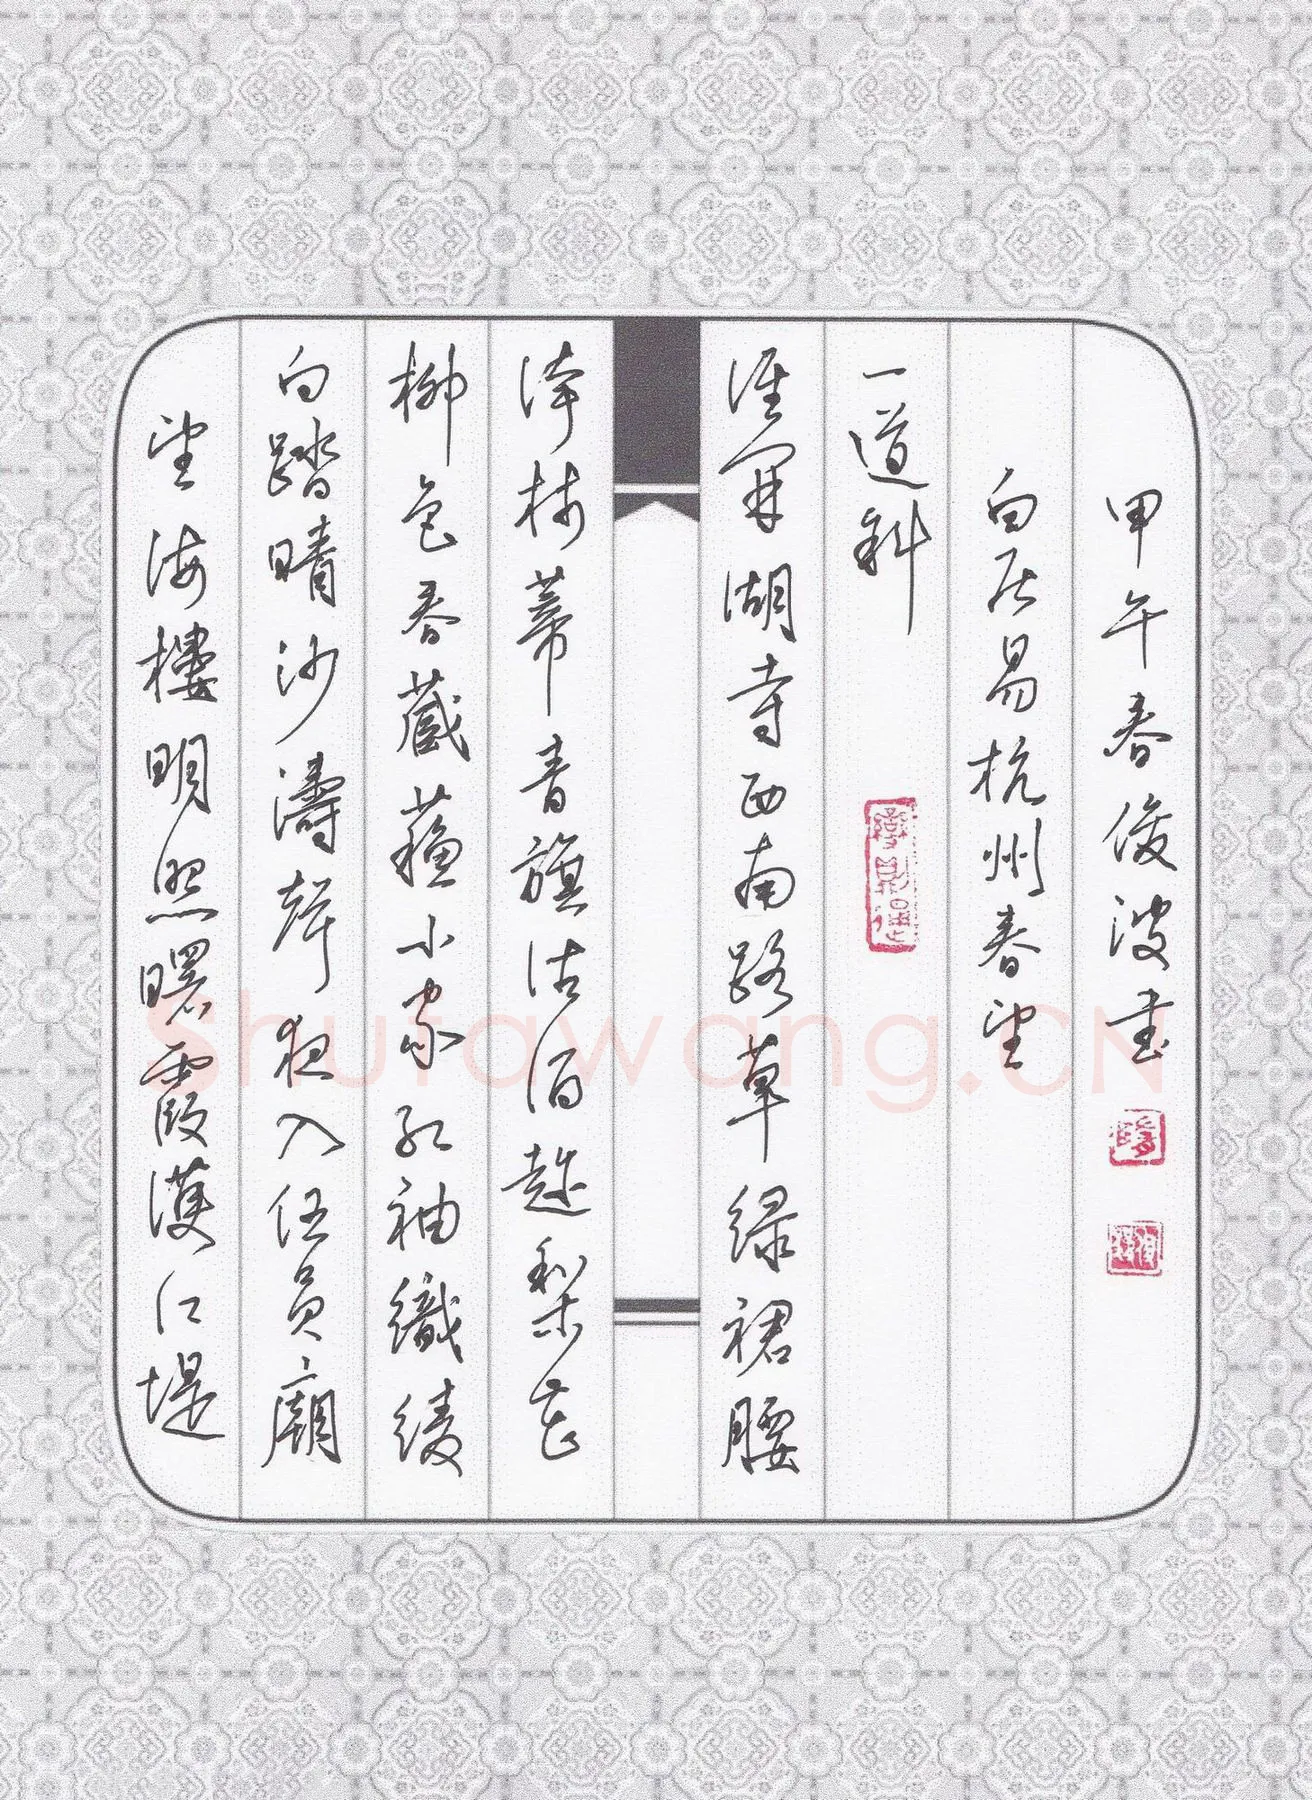 望海樓明照曙霞護江堤
白踏晴沙濤聲夜入伍員廟
柳色春藏蘇小家紅袖織綾
誇柿蒂青旗沽酒趁梨花
誰開湖寺西南路草綠裙腰
一道斜
白居易杭州春望
甲午春俊波書
Shufawang.CN